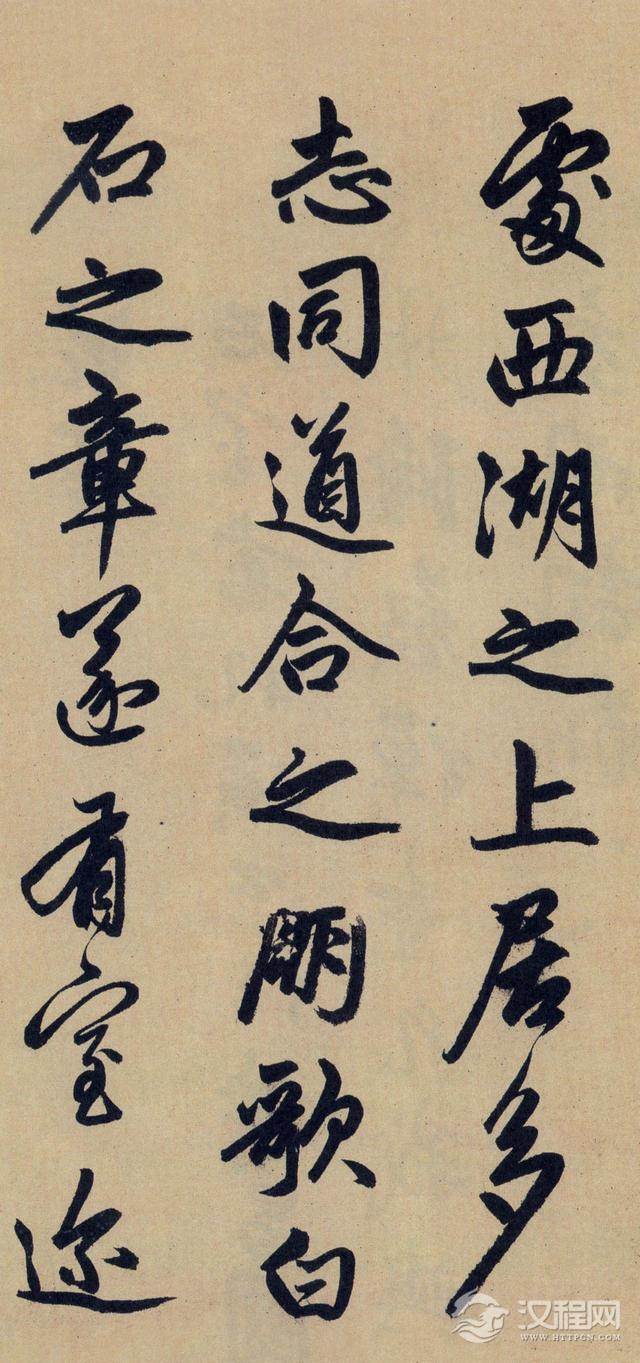 處西湖之上居多
志同道合之朋歌白
石之章遂有室迩
汉程网
WWW.HTTPCN.COM